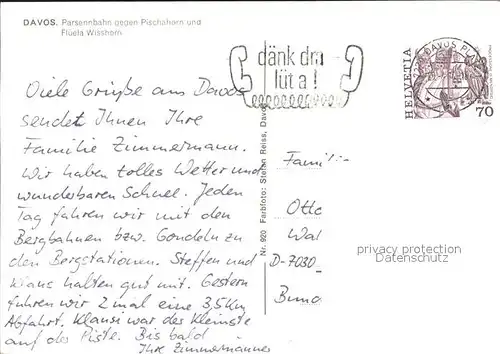 DAVOS. Parsennbahn gegen Pischahorn und
Flüela Wisshorn
Viele Grüße aus Davos
sendet Ihnen Ihre
Familie Zimmermann.
Wir haben tolles Wetter und
wunderbaren Schnee. Jeden
Tag fahren wir mit den
Bergbahnen bzw. Gondeln zu
den Bergstationen. Steffen und
Klaus halten gut mit. Gestern
fuhren wir 2 mal eine 3,5 Km
Abfahrt. Klausi war der Kleinste
auf der Piste. Bis bald
Ihre Zimmermanns
Nr. 920 Farbfoto: Stefan Reiss, Davos
dänk dra
lüt a!
DAVOS PLATZ
HELVETIA
70
Famili
Otto
Wal
D-7030
Bund
privacy protection
Datenschutz